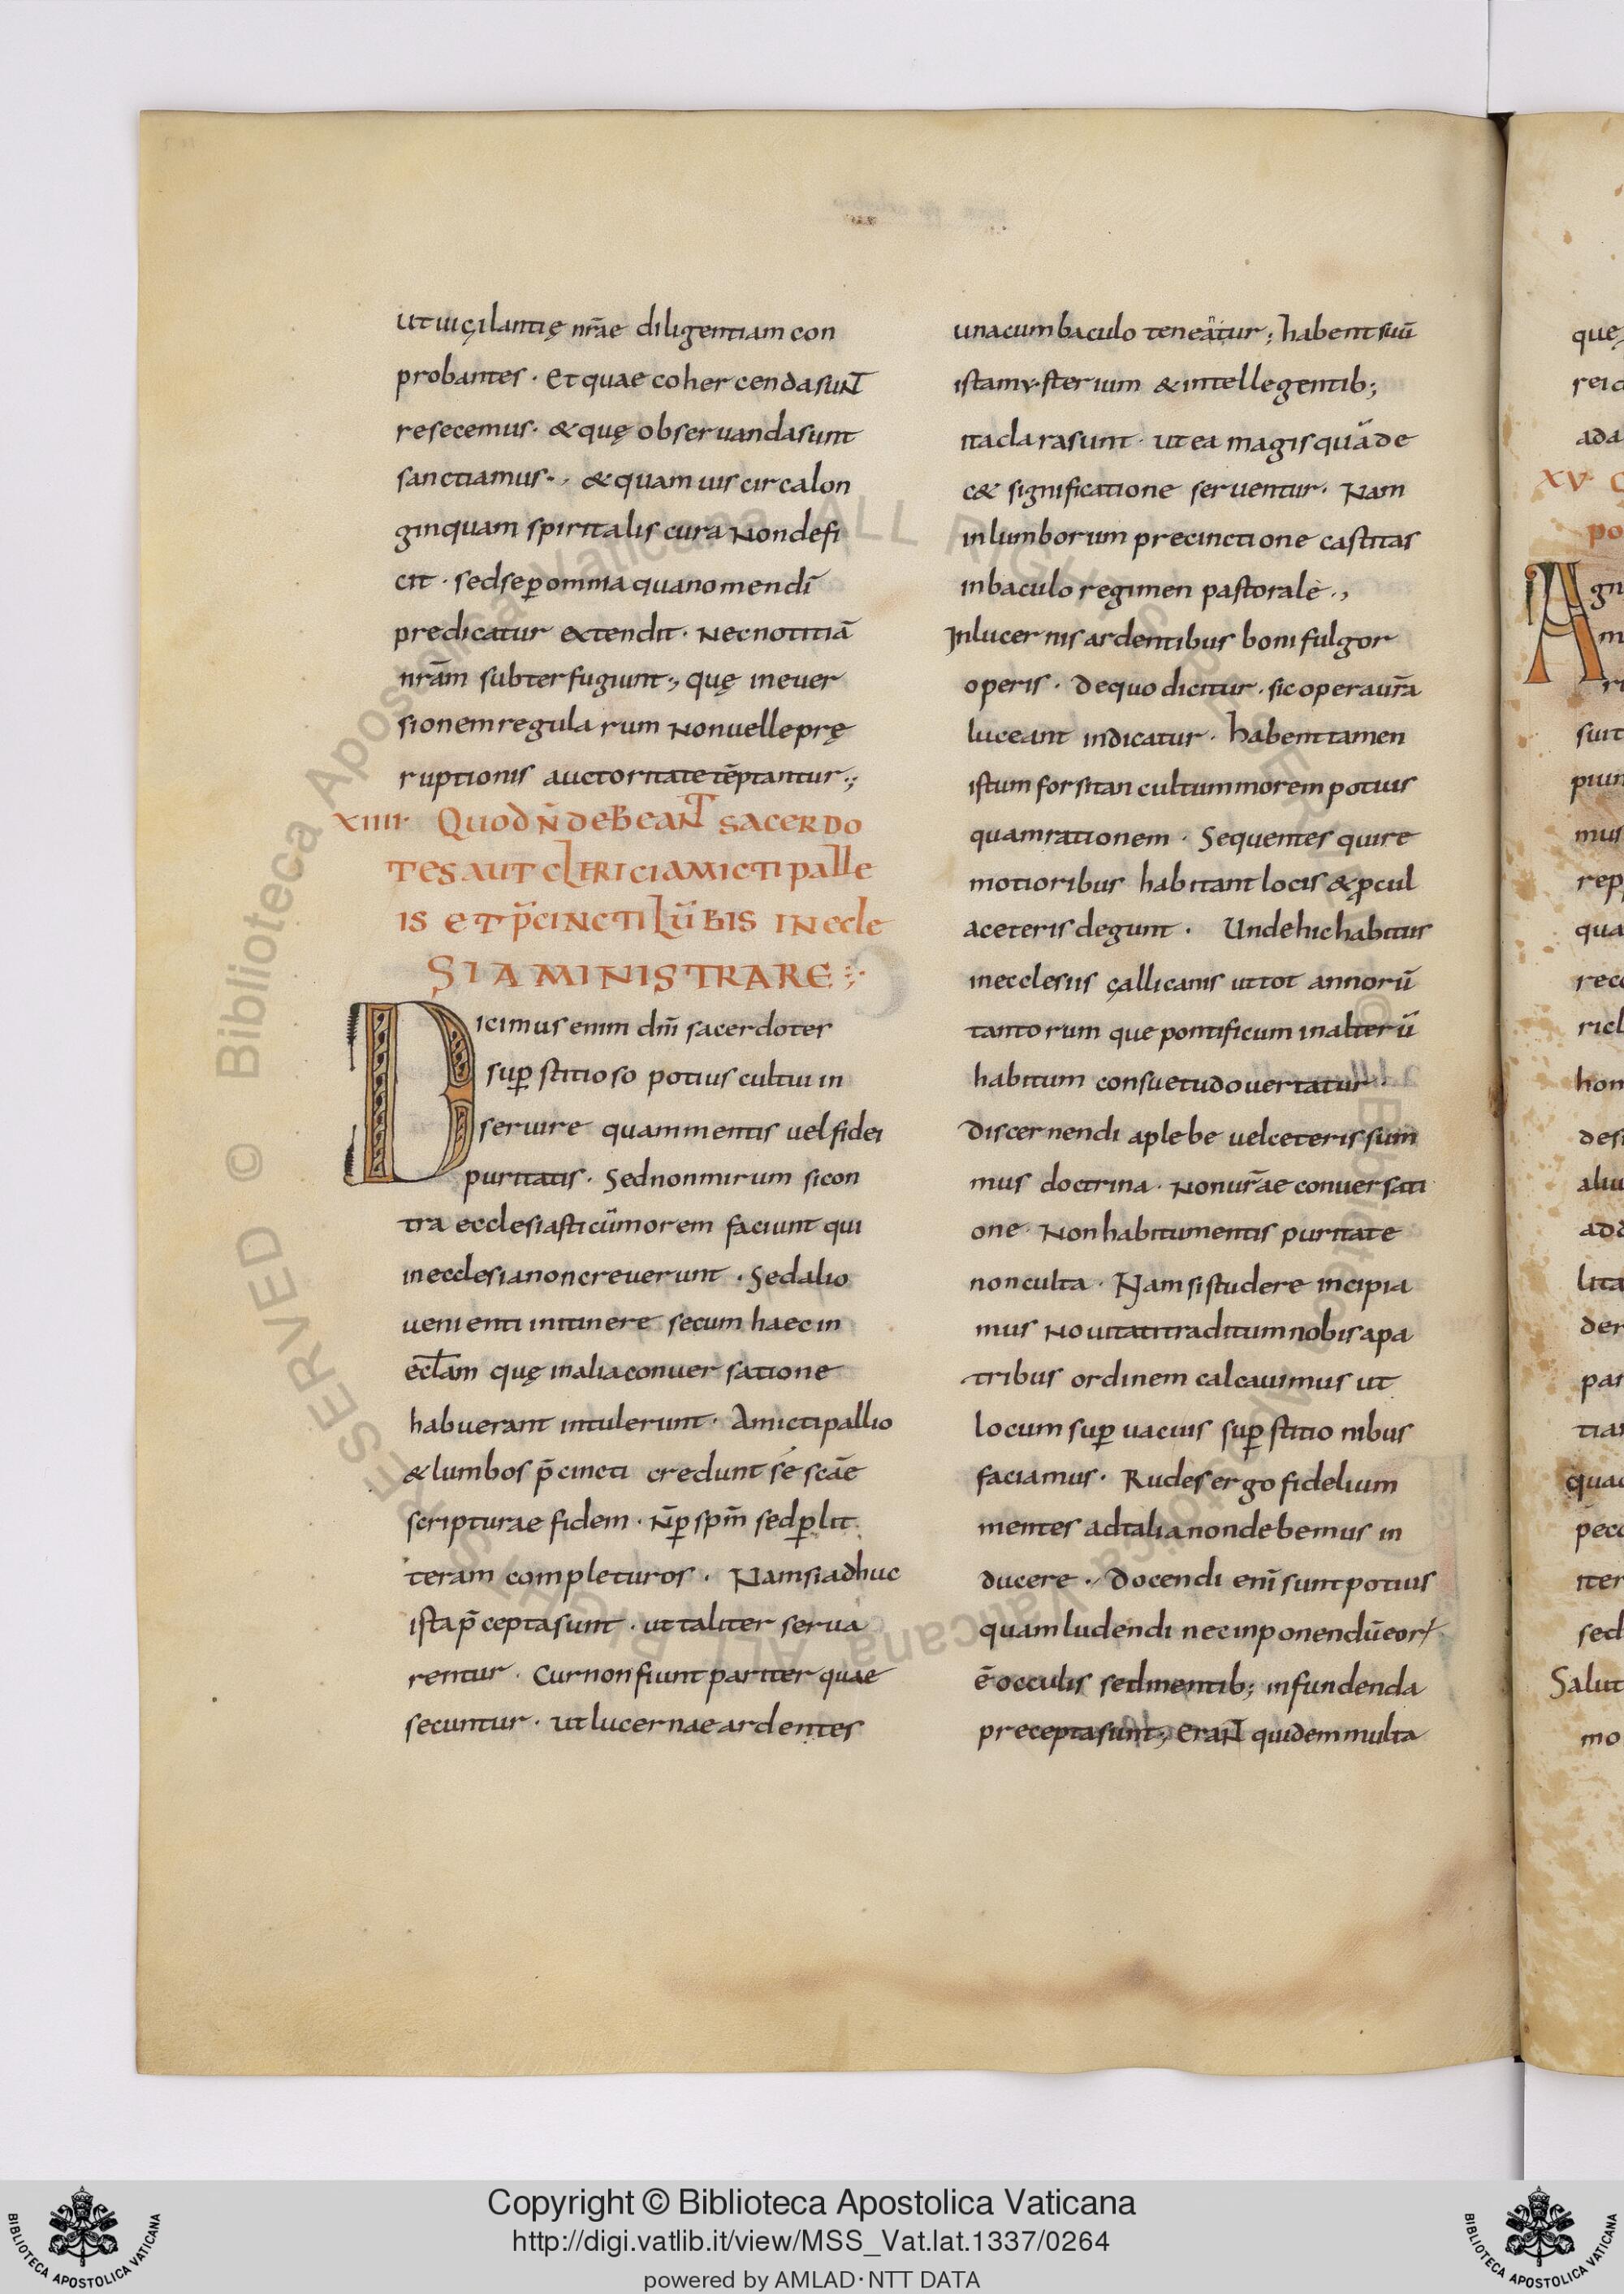 ut uigilantię nr̃ae diligentiam con
probantes · Et quae cohercenda suNT
resecemus · & quę obseruanda sunt
sanctiamus · , & quamuis circa lon
ginquam spiritalis cura Non defi
cit · sed se ꝑ omnia qua nomen dī
predicatur extendit · Nec notitiā
nrām subterfugiunt ·, quę in euer
sionem regularum Non uelle prę
ruptionis auctoritate tēptantur ·;
XIIII· QUOD N̄ DEBEANT SACERDO
TES AUT CLERICI AMICTI palle
IS ET P̄CINCTI LŪBIS IN eccle
SIA MINISTRARE :·
Dicimus enim dn̄i sacerdoter
suꝑstitioso potius cultui in
seruire quam mentis uel fidei
puritatis · Sed non mirum si con
tra ecclesiasticū morem faciunt qui
in ecclesia non creuerunt · Sed alio
uenienti in itinere secum haec in
ecl̄am quę in alia conuersatione
habuerant intulerunt · Amicti pallio
& lumbos p̄cincti credunt sé scāe
scripturae fidem · N̄ ꝑ spm̄ sed ꝑ lit
teram completuros · Nam si adhuc
ista p̄cepta sunt · ut taliter serua
rentur · Cur non fiunt pariter quae
secuntur · ut lucernae ardentes
una cum baculo teneātur ; habent suū
ista mysterium & intellegentib;
ita clara sunt · ut ea magis quā de
c& significatione seruentur · Nam
in lumborum precinctione castitas
in baculo regimen pastorale · ,
In lucernis ardentibus boni fulgor
operis · De quo dicitur · sic opera ur̄a
luceant indicatur · habent tamen
istum forsitan cultum morem potius
quam rationem · Sequentes qui re
motioribus habitant locis & ꝓcul
a ceteris degunt · Unde hic habitus
in ecclesiis gallicanis ut tot annorū
tantorum que pontificum in alterū
habitum consuetudo uertatur ·
Discernendi a plebe uel ceteris sum
mus doctrina · Non ur̄ae conuersati
one · Non habitu mentis puritate
non culta · Nam si studere incipia
mus Nouitati traditum nobis a pa
tribus ordinem calcauimus ut
locum suꝑuacuis suꝑstitionibus
faciamus · Rudes ergo fidelium
mentes ad talia non debemus in
ducere · Docendi enī sunt potius
quam ludendi nec inponendū eoꝝ
ē occulis sed mentib; infundenda
precepta sunt ·, EraNT quidem multa
Copyright © Biblioteca Apostolica Vaticana
http://digi.vatlib.it/view/MSS_Vat.lat.1337/0264
powered by AMLAD·NTT DATA